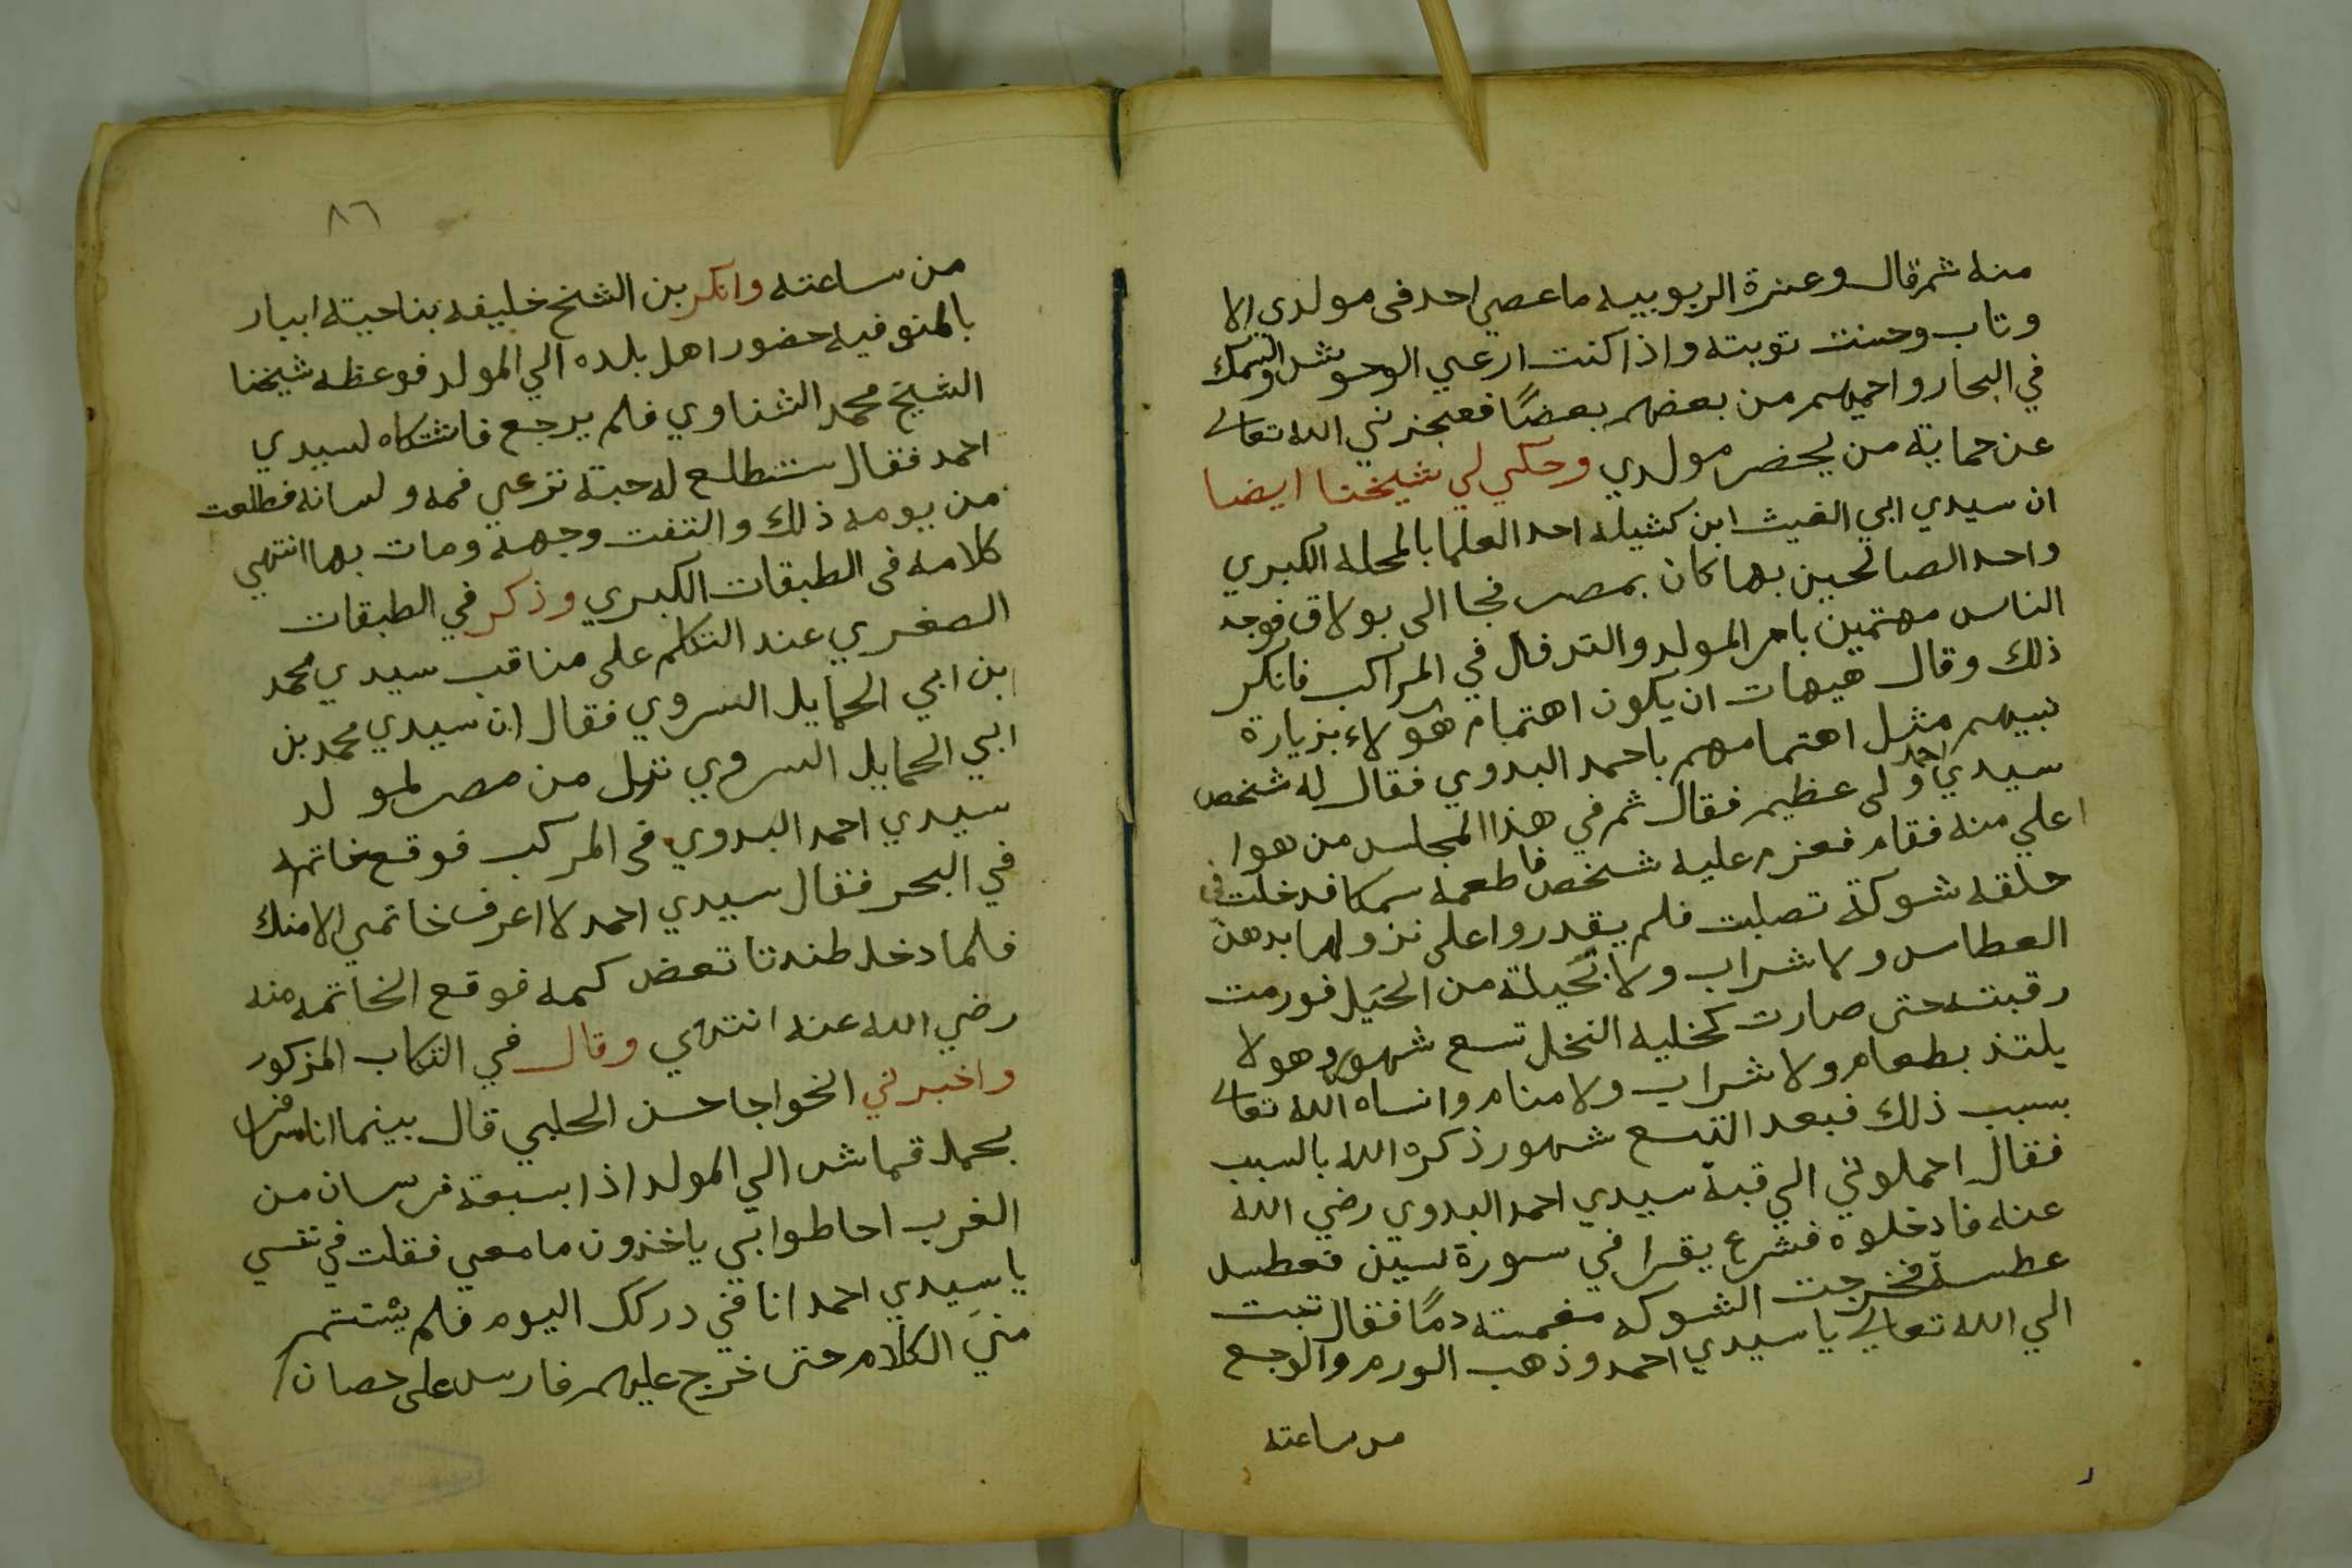 منه ثم قال وعزة الربوبيه ما عصي احد في مولدي الا
وتاب وحسنت توبته واذا كنت ارعي الوحوش والسمك
في البحار واحميهم من بعضهم بعضًا فيعجزني الله تعالى
عن حماية من يحضر مولدي وحكي لي شيخنا ايضا
ان سيدي ابي الغيث ابن كثيله احد العلما بالمحلة الكبري
واحد الصالحين بها كان بمصر فجا الى بولاق فوجد
الناس مهتمين بامر المولد والنزول في المراكب فانكر
ذلك وقال هيهات ان يكون اهتمام هولاء بزيارة
نبيهم مثل اهتمامهم باحمد البدوي فقال له شخص
سيدي احمد ولى عظيم فقال ثم في هذا المجلس من هو ا
اعلي منه فقام فعزم عليه شخص فاطعمه سمكا فدخلت في
حلقه شوكة تصلبت فلم يقدروا على نزولها بدهن
العطاس ولا شراب ولا بحيلة من الحيل فورمت
رقبته حتى صارت كخلية النحل تسع شهور وهو لا
يلتذ بطعام ولا شراب ولا منام وانساه الله تعالى
بسبب ذلك فبعد التسع شهور ذكره الله بالسبب
فقال احملوني الي قبة سيدي احمد البدوي رضي الله
عنه فادخلوه فشرع يقرا في سورة يسين فعطس
عطسة فخرجت الشوكه مغمسته دمًا فقال تبت
الي الله تعالي يا سيدي احمد وذهب الورم والوجع
من ساعته
٨٦
من ساعته وانكر بن الشيخ خليفه بناحية ابيار
بالمنوفيه حضور اهل بلده الي المولد فوعظه شيخنا
الشيخ محمد الشناوي فلم يرجع فاشتكاه لسيدي
احمد فقال ستطلع له حبة ترعي فمه ولسانه فطلعت
من يومه ذلك والتفت وجهه ومات بها انتهي
كلامه في الطبقات الكبري وذكر في الطبقات
الصغري عند التكلم على مناقب سيدي محمد
ابن ابي الحمايل السروي فقال ان سيدي محمد بن
ابي الحمايل السروي نزل من مصر لمولد
سيدي احمد البدوي في المركب فوقع خاتمه
في البحر فقال سيدي احمد لا اعرف خاتمي الا منك
فلما دخل طندتا نفض كمه فوقع الخاتم منه
رضي الله عنه انتهي وقال في الكتاب المذكور
واخبرني الخواجا حسن الحلبي قال بينما انا مسافرا
بحمل قماش الي المولد اذا بسبعة فرسان من
العرب احاطوا بي ياخذون ما معي فقلت في نفسي
يا سيدي احمد انا في دركك اليوم فلم يستتم
مني الكلام حتى خرج عليهم فارس على حصان